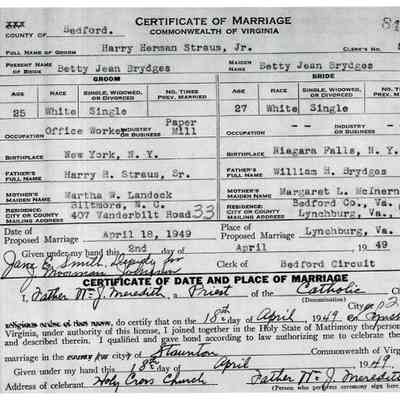 CERTIFICATE OF MARRIAGE
COUNTY OF Bedford.
COMMONWEALTH OF VIRGINIA
FULL NAME OF GROOM Harry Herman Straus, Jr. CLERK'S NO.
PRESENT NAME OF BRIDE Betty Jean Brydges MAIDEN NAME Betty Jean Brydges
GROOM BRIDE
AGE RACE SINGLE, WIDOWED, OR DIVORCED NO. TIMES PREV. MARRIED AGE RACE SINGLE, WIDOWED, OR DIVORCED NO. TIMES PREV. MARRIED
25 White Single 27 White Single
OCCUPATION Office Worker INDUSTRY OR BUSINESS Paper Mill OCCUPATION INDUSTRY OR BUSINESS
BIRTHPLACE New York, N. Y. BIRTHPLACE Niagara Falls, N. Y.
FATHER'S FULL NAME Harry H. Straus, Sr. FATHER'S FULL NAME William H. Brydges
MOTHER'S MAIDEN NAME Martha W. Landeck MOTHER'S MAIDEN NAME Margaret L. McInern
RESIDENCE: CITY OR COUNTY MAILING ADDRESS Biltmore, N. C. 407 Vanderbilt Road 33 RESIDENCE: CITY OR COUNTY MAILING ADDRESS Bedford Co., Va. Lynchburg, Va.,
Date of Proposed Marriage April 18, 1949 Place of Proposed Marriage Lynchburg, Va.
Given under my hand this 2nd day of April 19 49
Jane E. Smith, Deputy for Clerk of Bedford Circuit
CERTIFICATE OF DATE AND PLACE OF MARRIAGE
I, Father Wm J. Meredith, a Priest of the Catholic
(Denomination)
do certify that on the 18th day of April 1949
Virginia, under authority of this license, I joined together in the Holy State of Matrimony the persons
and described therein. I qualified and gave bond according to law authorizing me to celebrate the
marriage in the county (or city) of Staunton Commonwealth of Virginia
Given under my hand this 18th day of April 1949.
Address of celebrant Holy Cross Church Father Wm J. Meredith
(Person who performs ceremony sign here